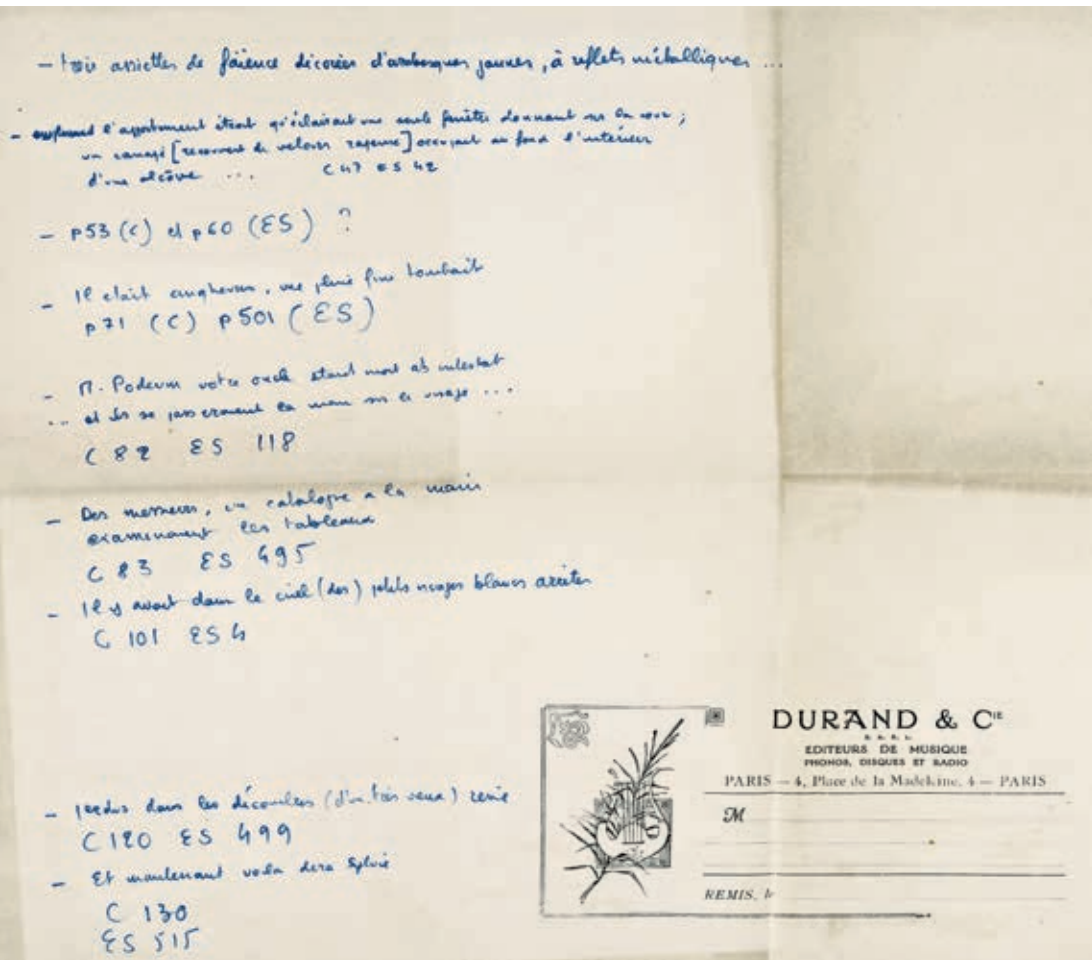 – trois assiettes de faïence décorées d'arabesques jaunes, à reflets métalliques ...
– l'appartement étant qu'éclairait une seule fenêtre donnant sur la cour ;
un canapé [recouvert de velours] occupait au fond l'intérieur
d'une alcôve ... C 47 ES 42
– p53 (C) et p60 (ES) ?
– Il était onze heures, une pluie fine tombait
p71 (C) p501 (ES)
– M. votre oncle étant mort ab intestat
... et ils se passeraient la main sur le visage ...
C 82 ES 118
– Des messieurs, un catalogue a la main
examinaient les tableaux
C 83 ES 495
– Il y avait dans le ciel (des) petits nuages blancs arrêtés
C 101 ES 4
– perdus dans les décombres (d'un très vieux) rêve
C 120 ES 499
– Et maintenant voilà dira Sylvie
C 130
ES 515
DURAND & Cie
S. A. R. L.
EDITEURS DE MUSIQUE
PHONOS, DISQUES ET RADIO
PARIS – 4, Place de la Madeleine, 4 – PARIS
M
REMIS, le